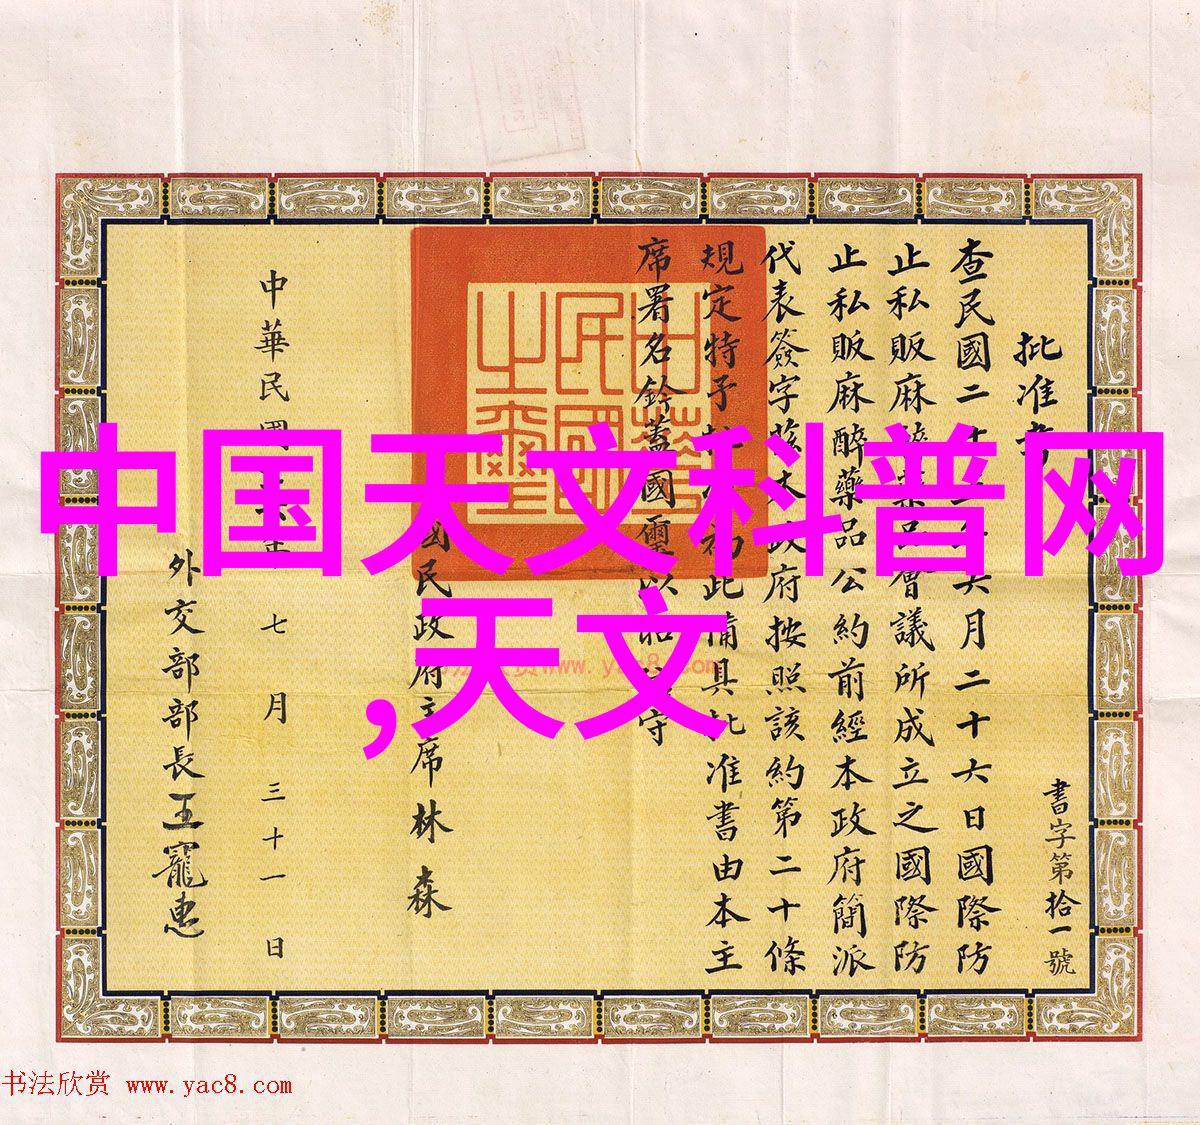 中国天文科普网
,天文
書字第拾一號
批准
查民國二十六月二十六日國際防
止私販麻醉藥品會議所成立之國際防
止私販麻醉藥品公約前經本政府簡派
代表簽字茲本政府按照該約第二十條
規定特予批此備具批准書由本主
席署名鈐蓋國璽以昭守
國民政府主席林森
中華民國年七月三十一日
外交部部長王寵惠
中華民國之璽
www.yac8.com
书法欣赏 www.yac8.com